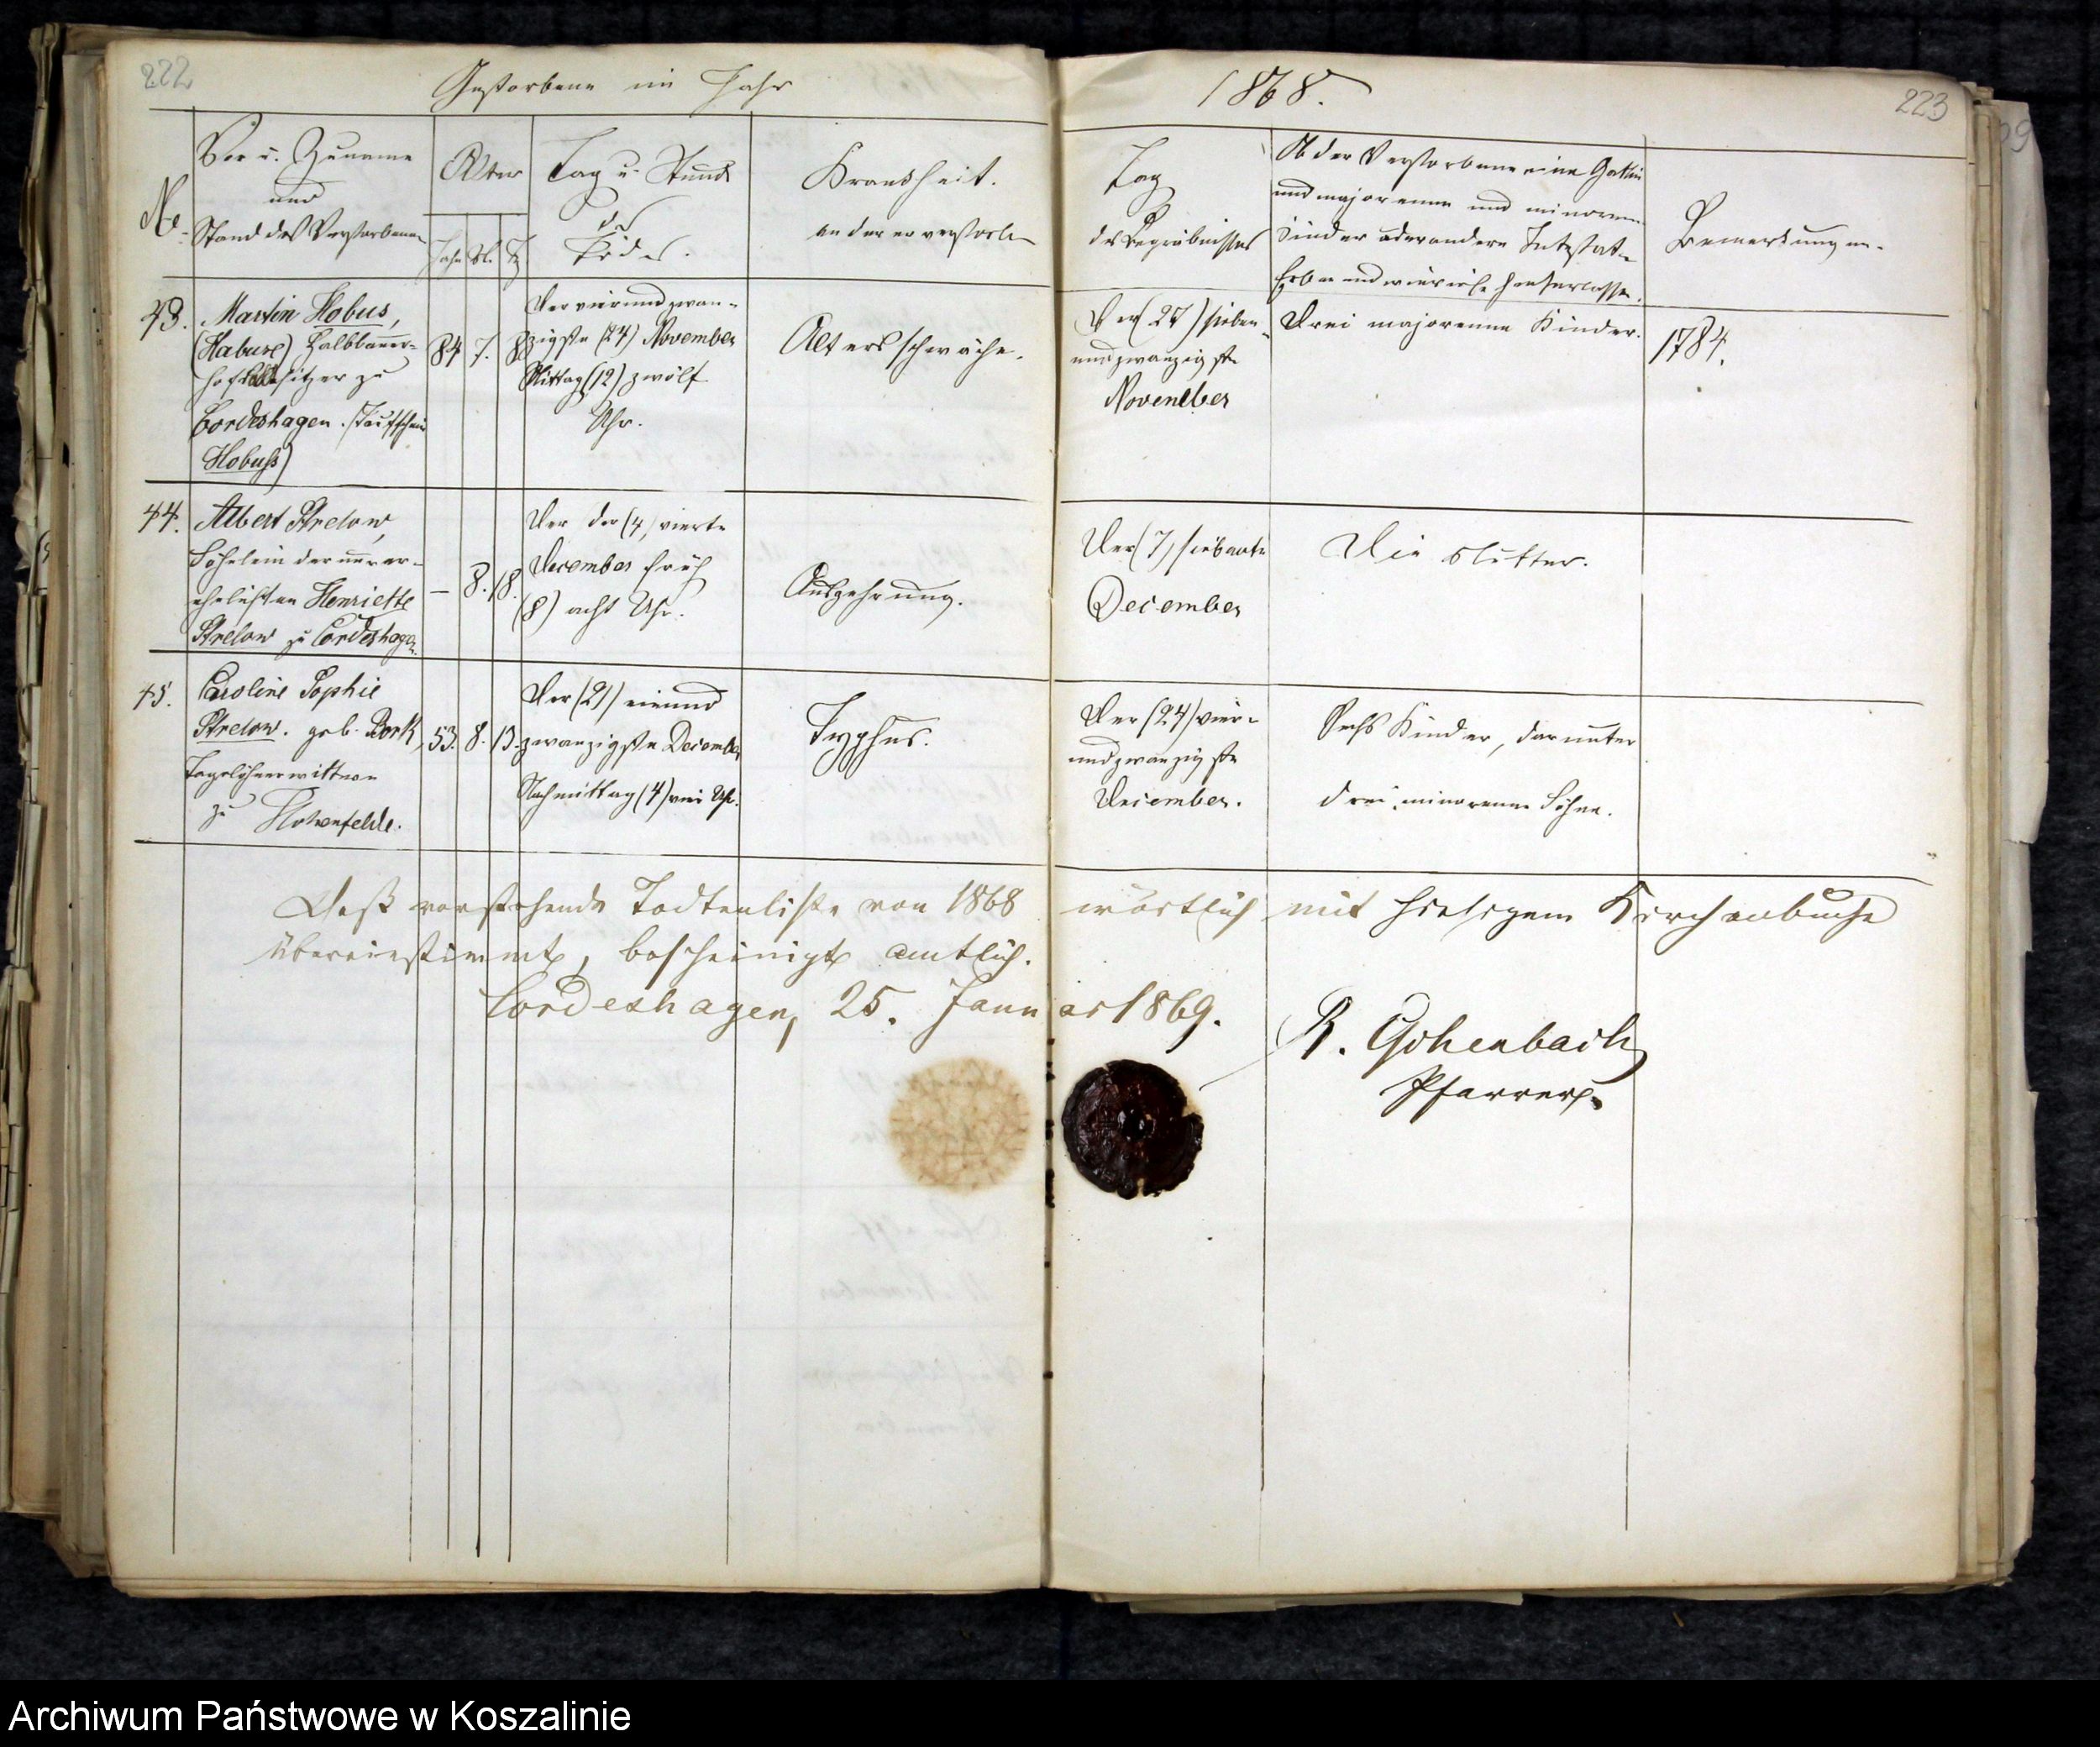 222
Gestorbene im Jahr
1868.
223
No.
Vor u. Zuname
und
Stand des Verstorbenen
Alter
Jahr M. T.
Tag u. Stunde
des
Todes.
Krankheit.
an der er verstorben
Tag
des Begräbnisses
Ob der Verstorbene eine Gattin
und majorenne und minorenne
Kinder oder andere Intestat-
Erben und wie viele hinterlassen.
Bemerkungen.
43.
Martin Hobus,
(Habuse) Halbbauer-
hofbesitzer zu
Cordeshagen. (Taufschein
Hobuss)
84 7. 8
Der vierundzwan-
zigste (24) November
Mittag (12) zwölf
Uhr.
Altersschwäche.
Der (27) sieben-
undzwanzigste
November
Drei majorenne Kinder.
1784.
44.
Albert Strelow,
Söhnlein der unver-
ehelichten Henriette
Strelow zu Cordeshagen.
— 8. 18.
Der der (4) vierte
December früh
(8) acht Uhr.
Auszehrung.
Der (7) siebente
December
Die Mutter.
45.
Caroline Sophie
Strelow. geb. Bork,
Tagelöhnerwittwe
zu Hohenfelde.
53. 8. 13.
Der (21) einund
zwanzigste December
Nachmittag (4) vier Uhr.
Typhus.
Der (24) vier-
undzwanzigste
December.
Sechs Kinder, darunter
drei minorenne Söhne.
Daß vorstehende Todtenliste von 1868 wörtlich mit hiesigem Kirchenbuche
übereinstimmt, bescheinigt amtlich.
Cordeshagen, 25. Januar 1869.
R. Gohenbach
Pfarrer.
Archiwum Państwowe w Koszalinie